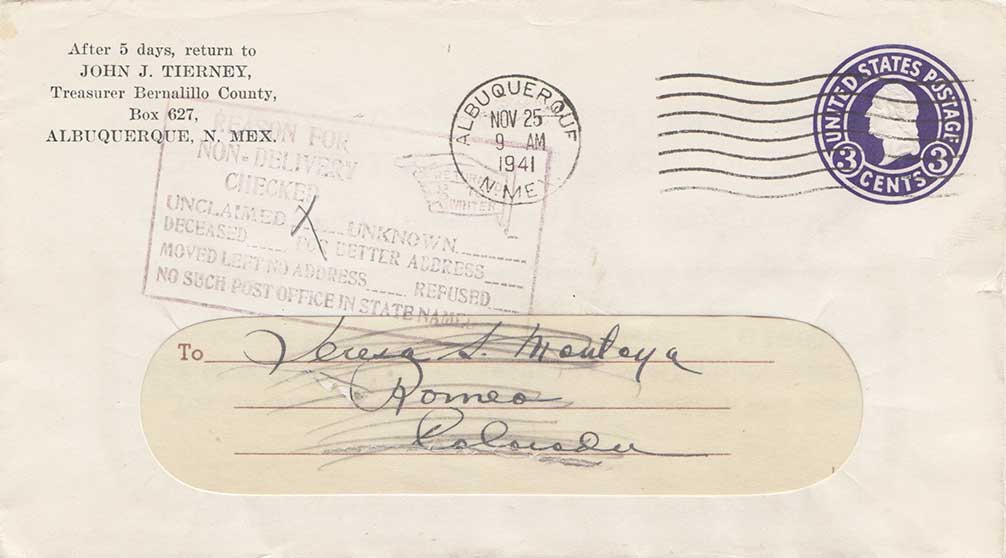 After 5 days, return to
JOHN J. TIERNEY,
Treasurer Bernalillo County,
Box 627,
ALBUQUERQUE, N. MEX.
ALBUQUERQUE
NOV 25
9 AM
1941
N. MEX
UNITED STATES POSTAGE
3 3
CENTS
REASON FOR
NON-DELIVERY
CHECKED
RETURNED
TO
WRITER
UNCLAIMED X UNKNOWN
DECEASED FOR BETTER ADDRESS
MOVED LEFT NO ADDRESS REFUSED
NO SUCH POST OFFICE IN STATE NAMED
To Teresa S. Montoya
Romeo
Colorado